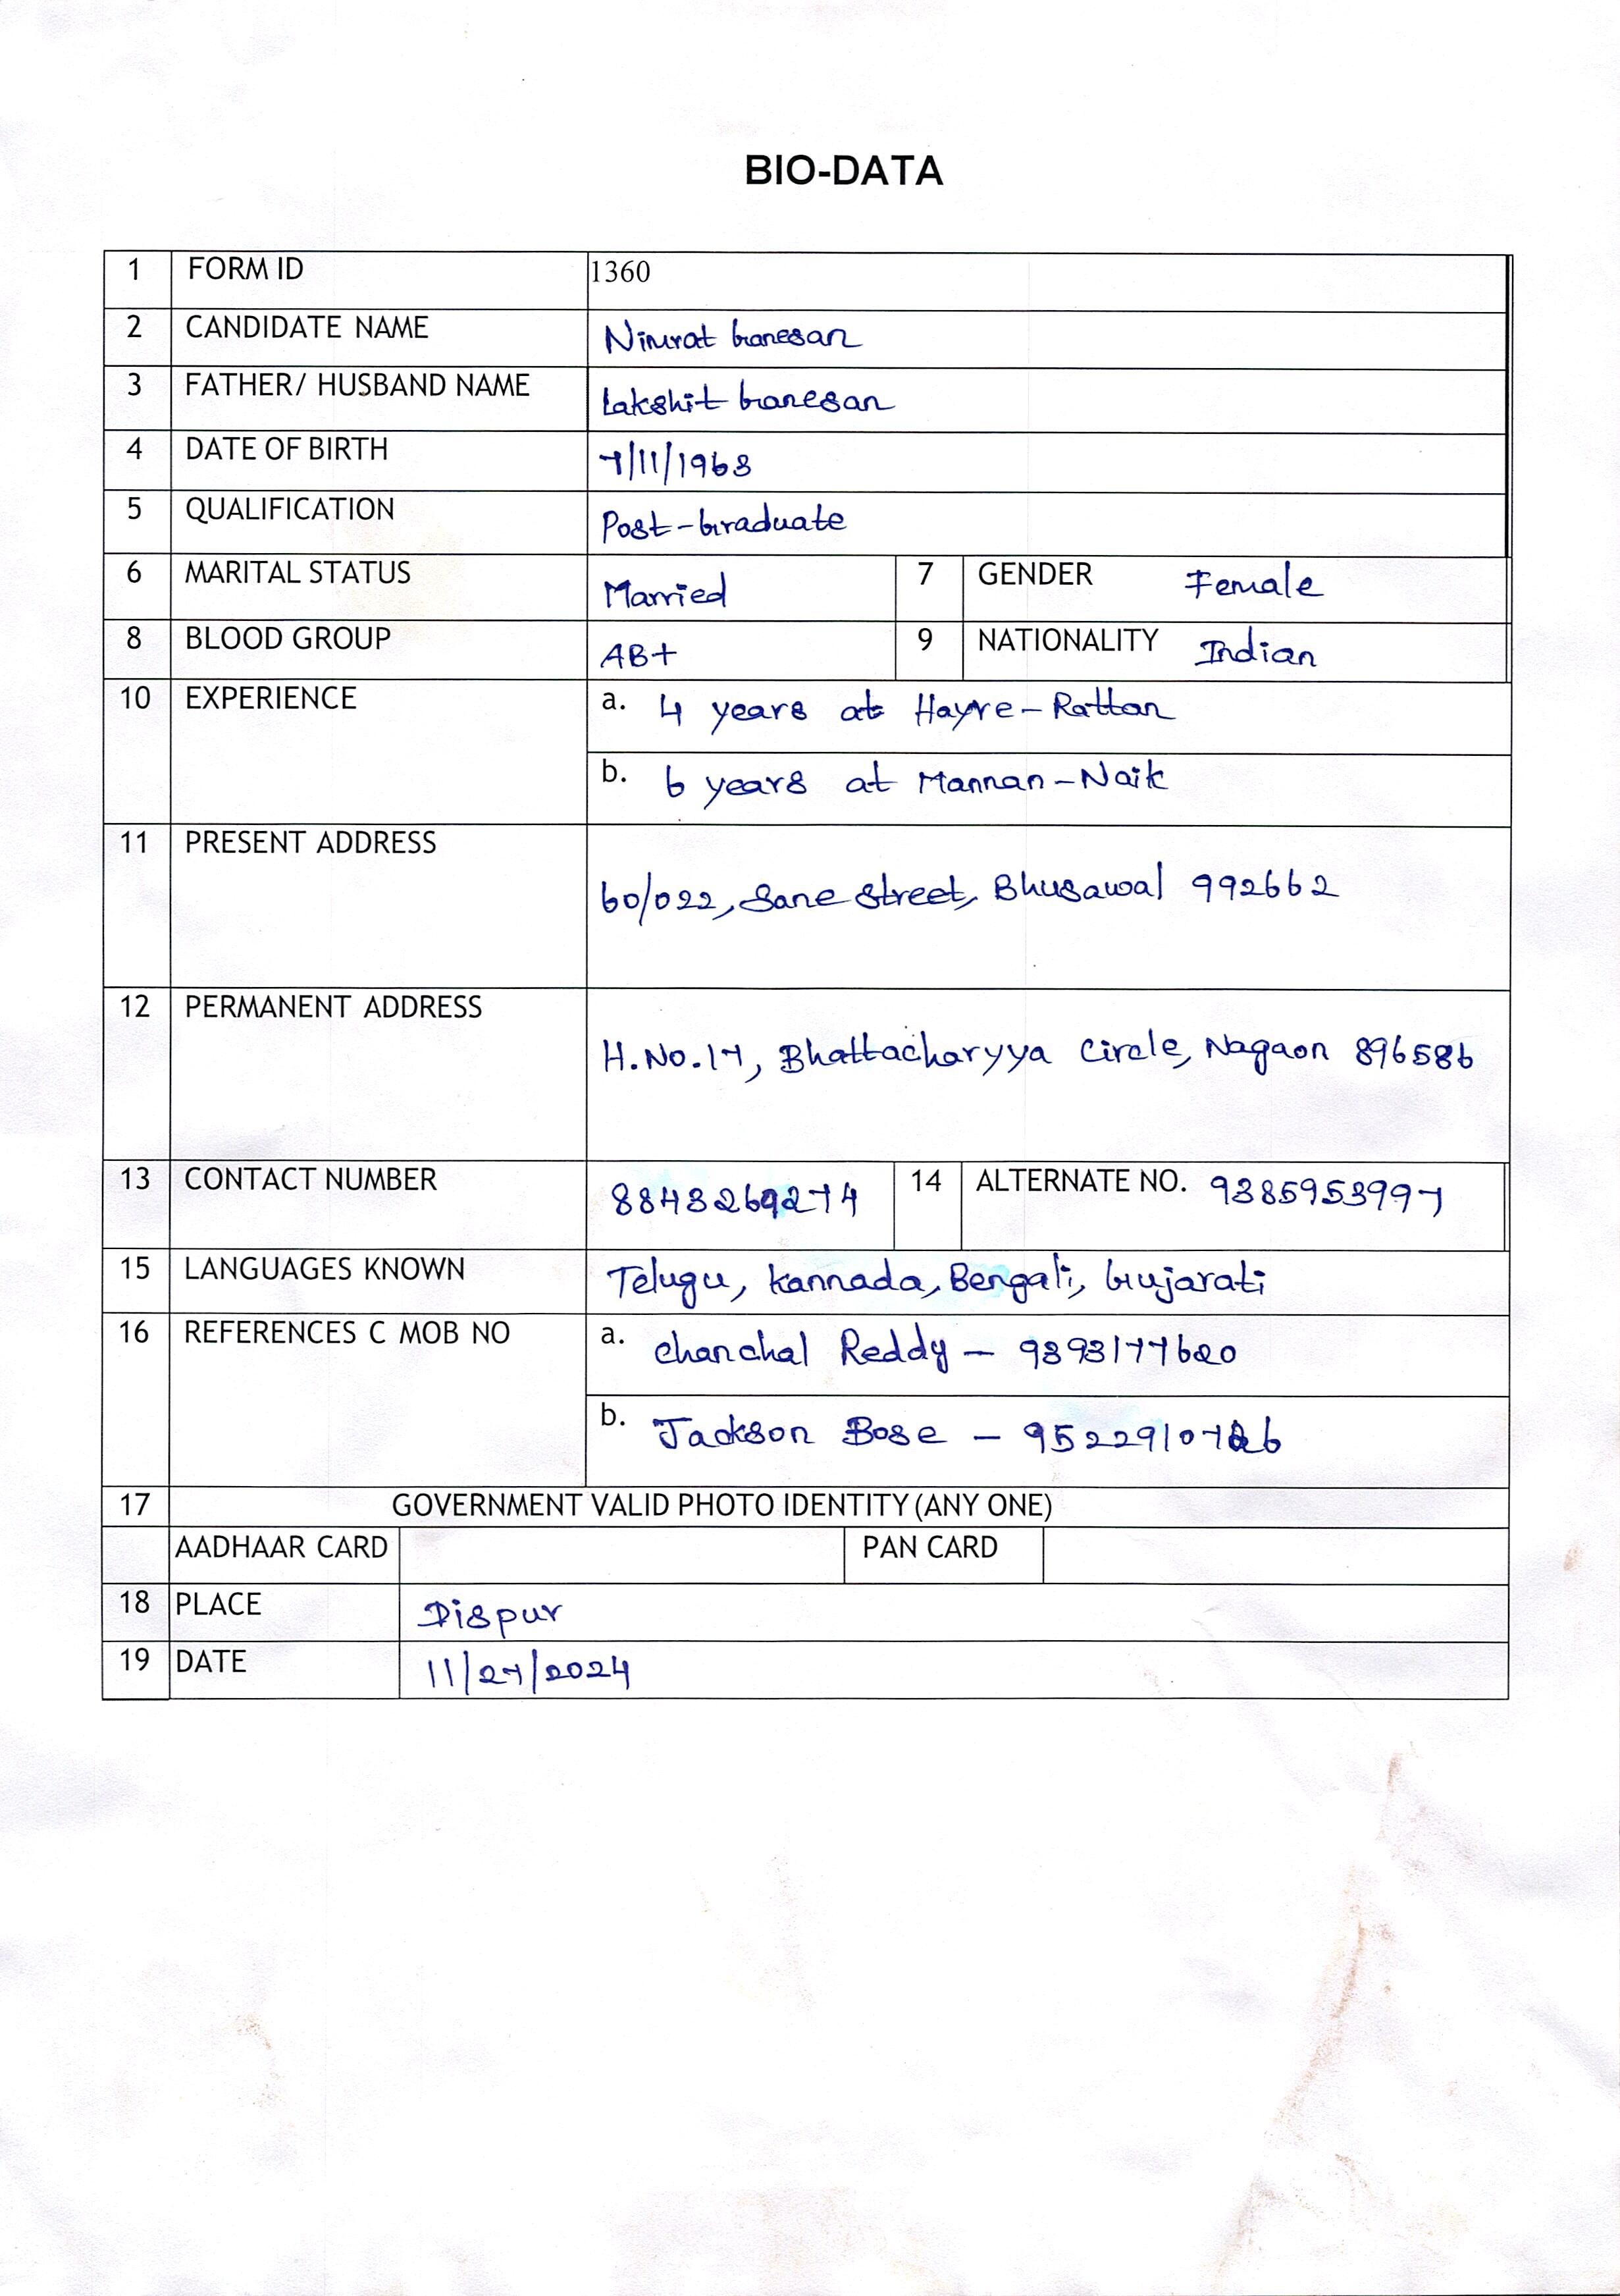 BIO-DATA
1 FORM ID 1360
2 CANDIDATE NAME Nimrat Ganesan
3 FATHER/ HUSBAND NAME Lakshit Ganesan
4 DATE OF BIRTH 7/11/1963
5 QUALIFICATION Post-Graduate
6 MARITAL STATUS Married 7 GENDER Female
8 BLOOD GROUP AB+ 9 NATIONALITY Indian
10 EXPERIENCE a. 4 years at Hayre-Rattan
b. 6 years at Mannan-Naik
11 PRESENT ADDRESS
60/022, Sane Street, Bhusawal 992662
12 PERMANENT ADDRESS
H.No.17, Bhattacharyya Circle, Nagaon 896586
13 CONTACT NUMBER 8843269274 14 ALTERNATE NO. 9385953997
15 LANGUAGES KNOWN Telugu, Kannada, Bengali, Gujarati
16 REFERENCES C MOB NO a. Chanchal Reddy - 9393177620
b. Jackson Bose - 9522910726
17 GOVERNMENT VALID PHOTO IDENTITY (ANY ONE)
AADHAAR CARD PAN CARD
18 PLACE Dispur
19 DATE 11/27/2024